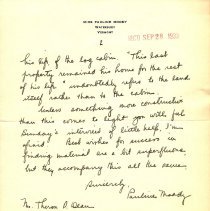 MISS PAULINE MOODY
WATERBURY
VERMONT
2
REC'D SEP 28 1939
his life of the log cabin. "This last
property remained his home for the rest
of his life" undoubtedly refers to the land
itself rather than to the cabin.
Unless something more constructive
than this comes to light you with ful
Sunday's interview of little help, I'm
afraid. Best wishes for success in
finding material are a bit superfluous,
but they accompany this all the same.
Sincerely
Pauline Moody
Mr. Theron S. Dean